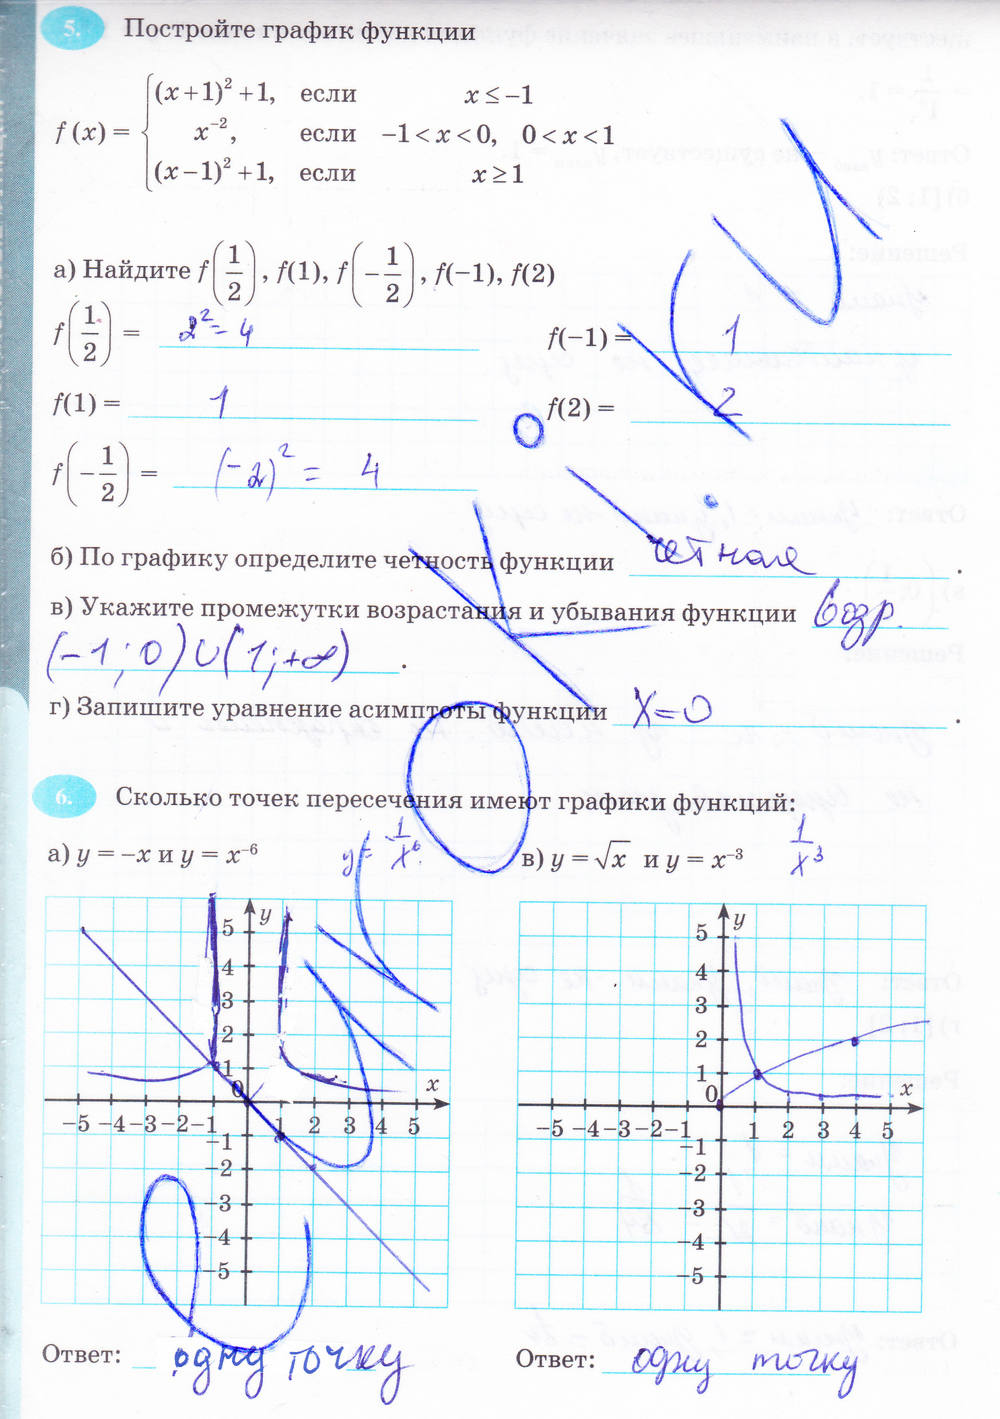 5. Постройте график функции
f(x) = { (x+1)² +1, если x ≤ −1
x⁻², если −1 < x < 0, 0 < x < 1
(x−1)² +1, если x ≥ 1
а) Найдите f(1/2), f(1), f(−1/2), f(−1), f(2)
f(1/2) = 2² = 4 f(−1) = 1
f(1) = 1 f(2) = 2
f(−1/2) = (−2)² = 4
б) По графику определите четность функции четная.
в) Укажите промежутки возрастания и убывания функции возр.
(−1; 0) ∪ (1; +∞).
г) Запишите уравнение асимптоты функции x=0.
6. Сколько точек пересечения имеют графики функций:
а) y = −x и y = x⁻⁶ y = 1/x⁶ в) y = √x и y = x⁻³ 1/x³
y
5
4
3
2
1
0
x
−5 −4 −3 −2 −1 1 2 3 4 5
−1
−2
−3
−4
−5
y
5
4
3
2
1
0
x
−5 −4 −3 −2 −1 1 2 3 4 5
−1
−2
−3
−4
−5
Ответ: одну точку Ответ: одну точку